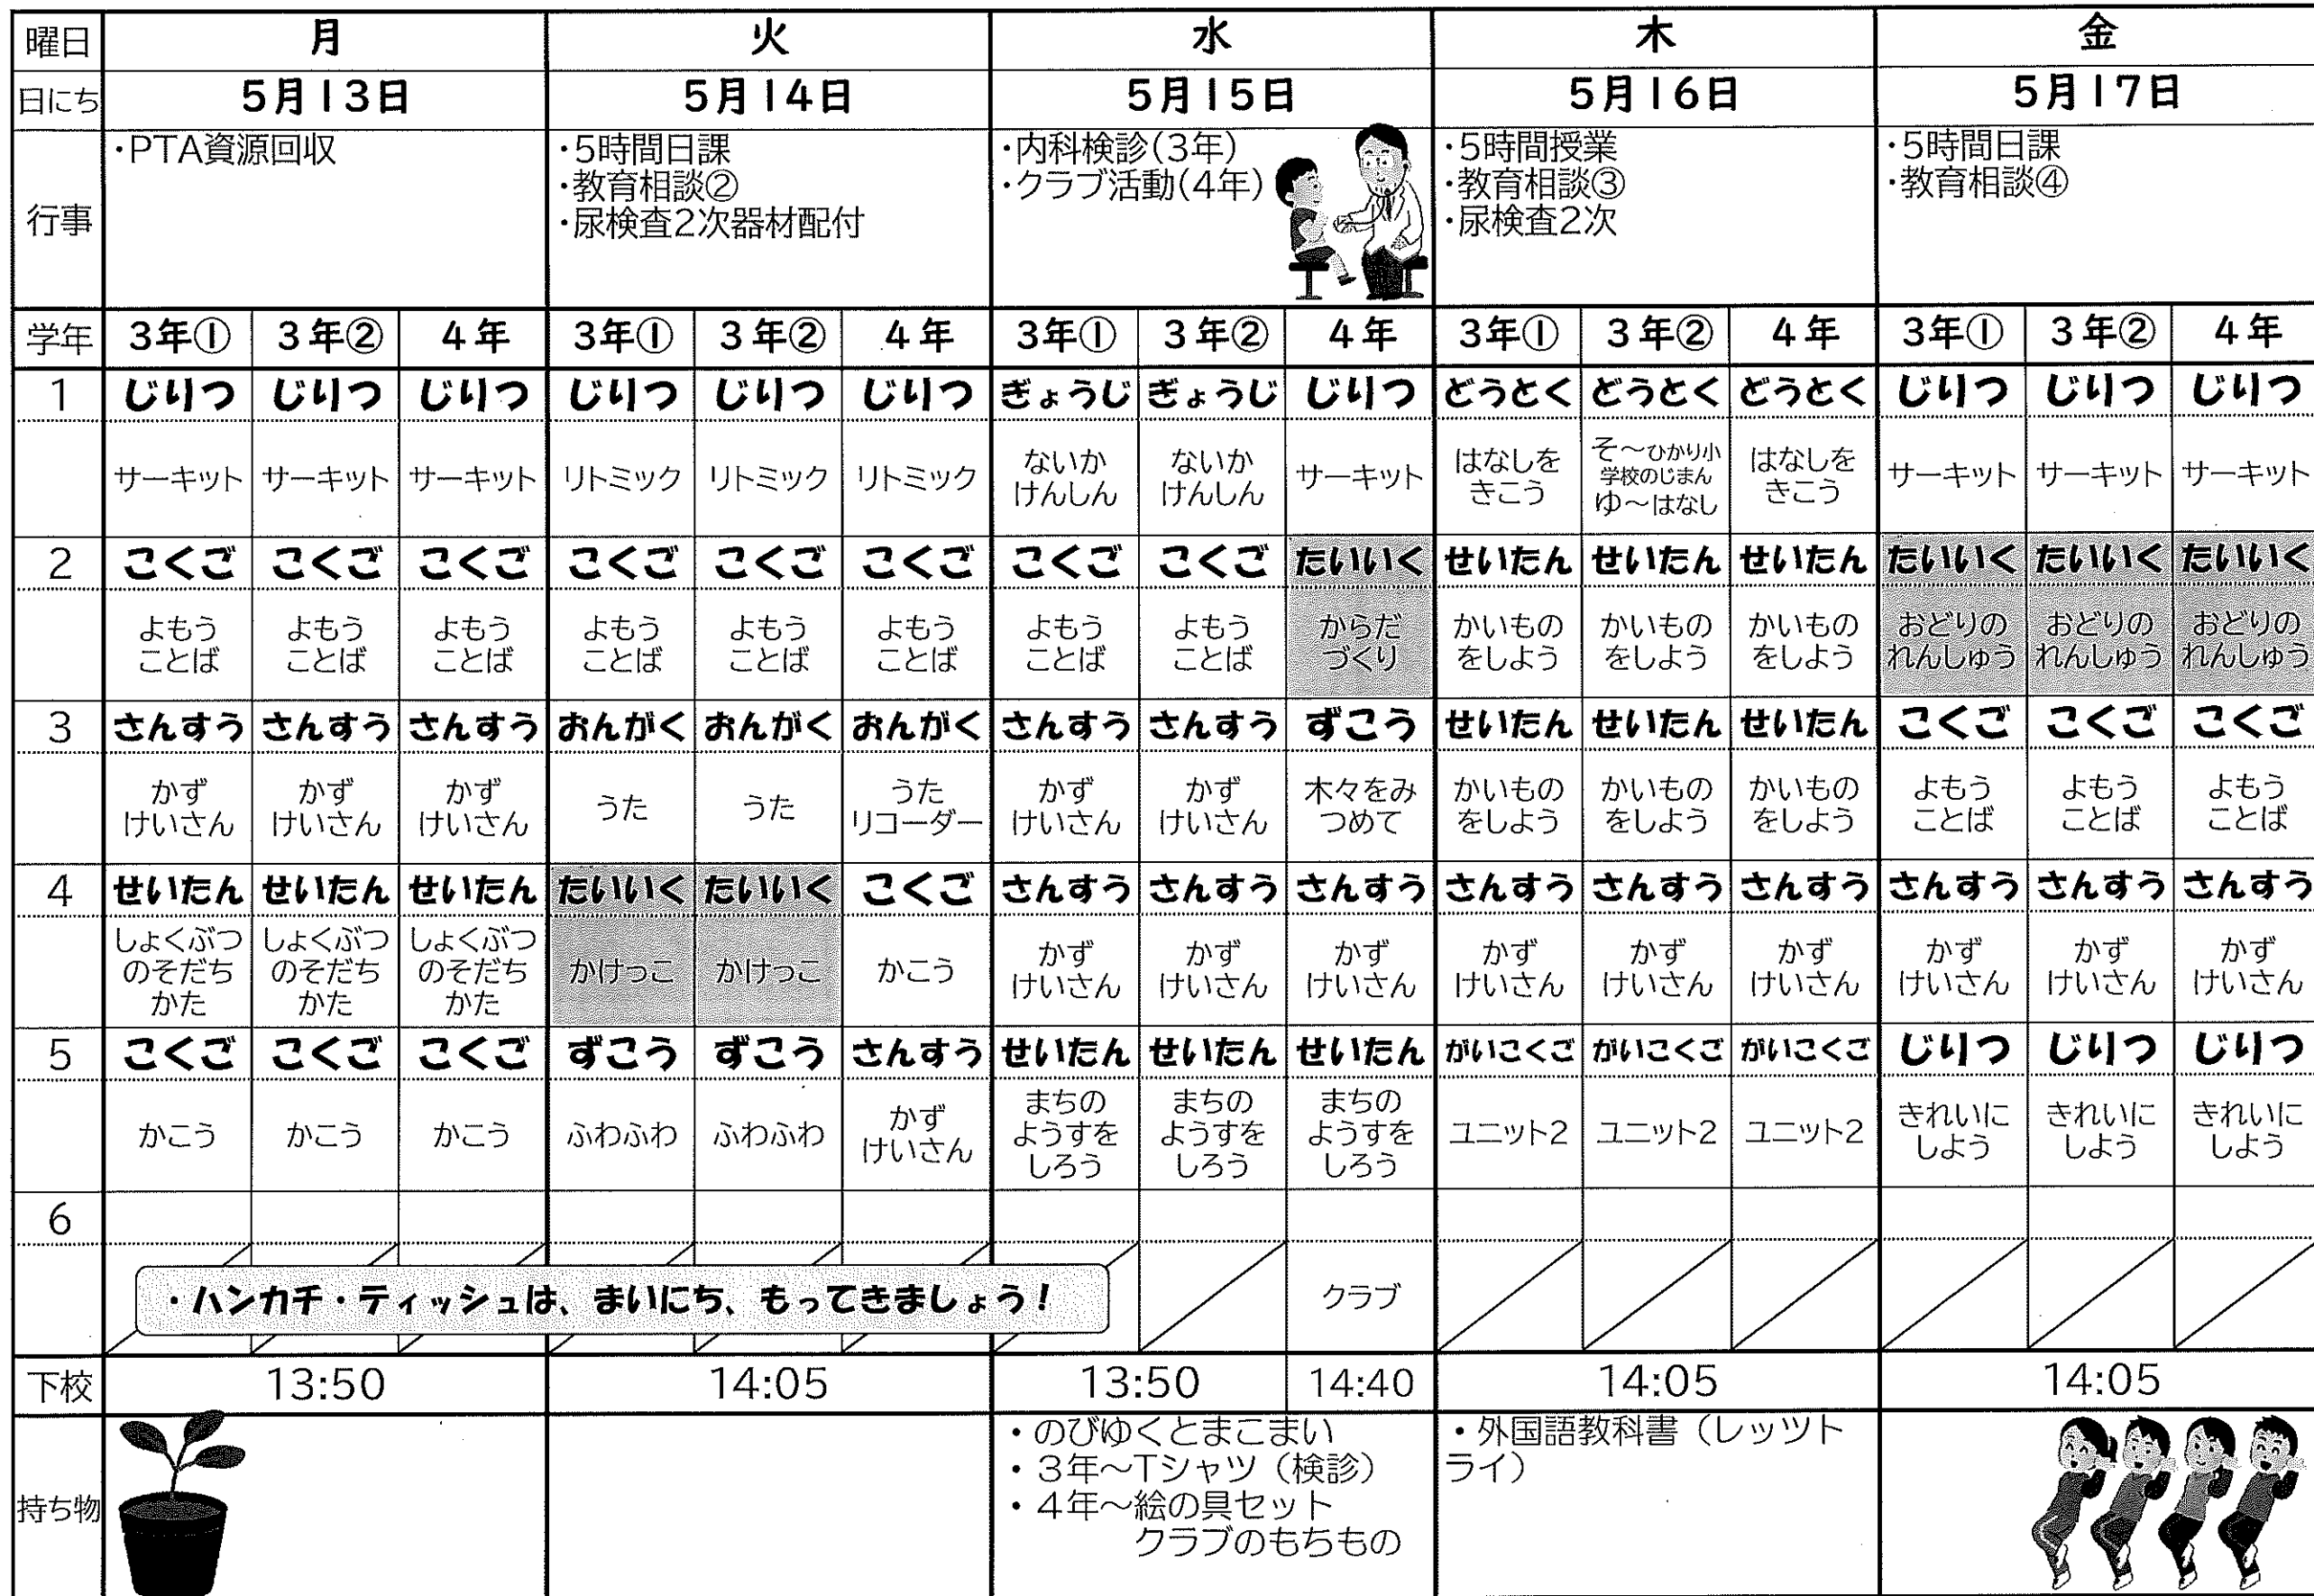 曜日 月 火 水 木 金
日にち 5月13日 5月14日 5月15日 5月16日 5月17日
行事
・PTA資源回収
・5時間日課
・教育相談②
・尿検査2次器材配付
・内科検診(3年)
・クラブ活動(4年)
・5時間授業
・教育相談③
・尿検査2次
・5時間日課
・教育相談④
学年 3年① 3年② 4年 3年① 3年② 4年 3年① 3年② 4年 3年① 3年② 4年 3年① 3年② 4年
1 じりつ じりつ じりつ じりつ じりつ じりつ ぎょうじ ぎょうじ じりつ どうとく どうとく どうとく じりつ じりつ じりつ
サーキット サーキット サーキット リトミック リトミック リトミック ないか けんしん ないか けんしん サーキット はなしを きこう そ～ひかり小 学校のじまん ゆ～はなし はなしを きこう サーキット サーキット サーキット
2 こくご こくご こくご こくご こくご こくご こくご こくご たいいく せいたん せいたん せいたん たいいく たいいく たいいく
よもう よもう よもう よもう よもう よもう よもう よもう からだ かいもの かいもの かいもの おどりの おどりの おどりの
ことば ことば ことば ことば ことば ことば ことば ことば づくり をしよう をしよう をしよう れんしゅう れんしゅう れんしゅう
3 さんすう さんすう さんすう おんがく おんがく おんがく さんすう さんすう ずこう せいたん せいたん せいたん こくご こくご こくご
かず けいさん かず けいさん かず けいさん うた うた うた リコーダー かず けいさん かず けいさん 木々をみ つめて かいもの をしよう かいもの をしよう かいもの をしよう よもう ことば よもう ことば よもう ことば
4 せいたん せいたん せいたん たいいく たいいく こくご さんすう さんすう さんすう さんすう さんすう さんすう さんすう さんすう さんすう
しょくぶつ のそだち かた しょくぶつ のそだち かた しょくぶつ のそだち かた かけっこ かけっこ かこう かず けいさん かず けいさん かず けいさん かず けいさん かず けいさん かず けいさん かず けいさん かず けいさん かず けいさん
5 こくご こくご こくご ずこう ずこう さんすう せいたん せいたん せいたん がいこくご がいこくご がいこくご じりつ じりつ じりつ
かこう かこう かこう ふわふわ ふわふわ かず けいさん まちの ようすを しろう まちの ようすを しろう まちの ようすを しろう ユニット2 ユニット2 ユニット2 きれいに しよう きれいに しよう きれいに しよう
6
・ハンカチ・ティッシュは、まいにち、もってきましょう！
クラブ
下校 13:50 14:05 13:50 14:40 14:05 14:05
持ち物
・のびゆくとまこまい
・3年～Tシャツ（検診）
・4年～絵の具セット
クラブのもちもの
・外国語教科書（レッツト
ライ）